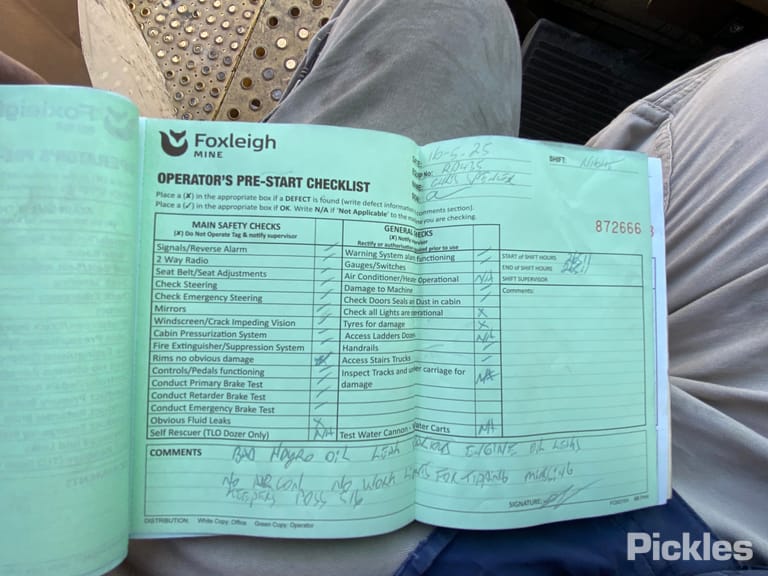 Foxleigh
MINE
OPERATOR'S PRE-START CHECKLIST
Place a (X) in the appropriate box if a DEFECT is found (write defect information comments section).
Place a (✓) in the appropriate box if OK. Write N/A if 'Not Applicable' to the you are checking.
16-5-25
No: RD435
SHIFT:
872666
MAIN SAFETY CHECKS
(X) Do Not Operate Tag & notify supervisor
Signals/Reverse Alarm
2 Way Radio
Seat Belt/Seat Adjustments
Check Steering
Check Emergency Steering
Mirrors
Windscreen/Crack Impeding Vision
Cabin Pressurization System
Fire Extinguisher/Suppression System
Rims no obvious damage
Controls/Pedals functioning
Conduct Primary Brake Test
Conduct Retarder Brake Test
Conduct Emergency Brake Test
Obvious Fluid Leaks X
Self Rescuer (TLO Dozer Only) N/A
GENERAL CHECKS
(X) Notify
Rectify or prior to use
Warning System functioning
Gauges/Switches
Air Conditioner/Heater Operational N/A
Damage to Machine
Check Doors Seals Dust in cabin
Check all Lights are operational X
Tyres for damage X
Access Ladders N/A
Handrails
Access Stairs Trucks
Inspect Tracks and under carriage for
damage N/A
Test Water Cannon - Water Carts N/A
START OF SHIFT HOURS
END OF SHIFT HOURS
SHIFT SUPERVISOR
Comments:
COMMENTS
BAD HYDRO OIL LEAK ENGINE OIL LEAKS
NO AIR CON NO WORK LIGHTS FOR TIPPING MISSING
SIGNATURE:
DISTRIBUTION: White Copy: Office Green Copy: Operator
Pickles